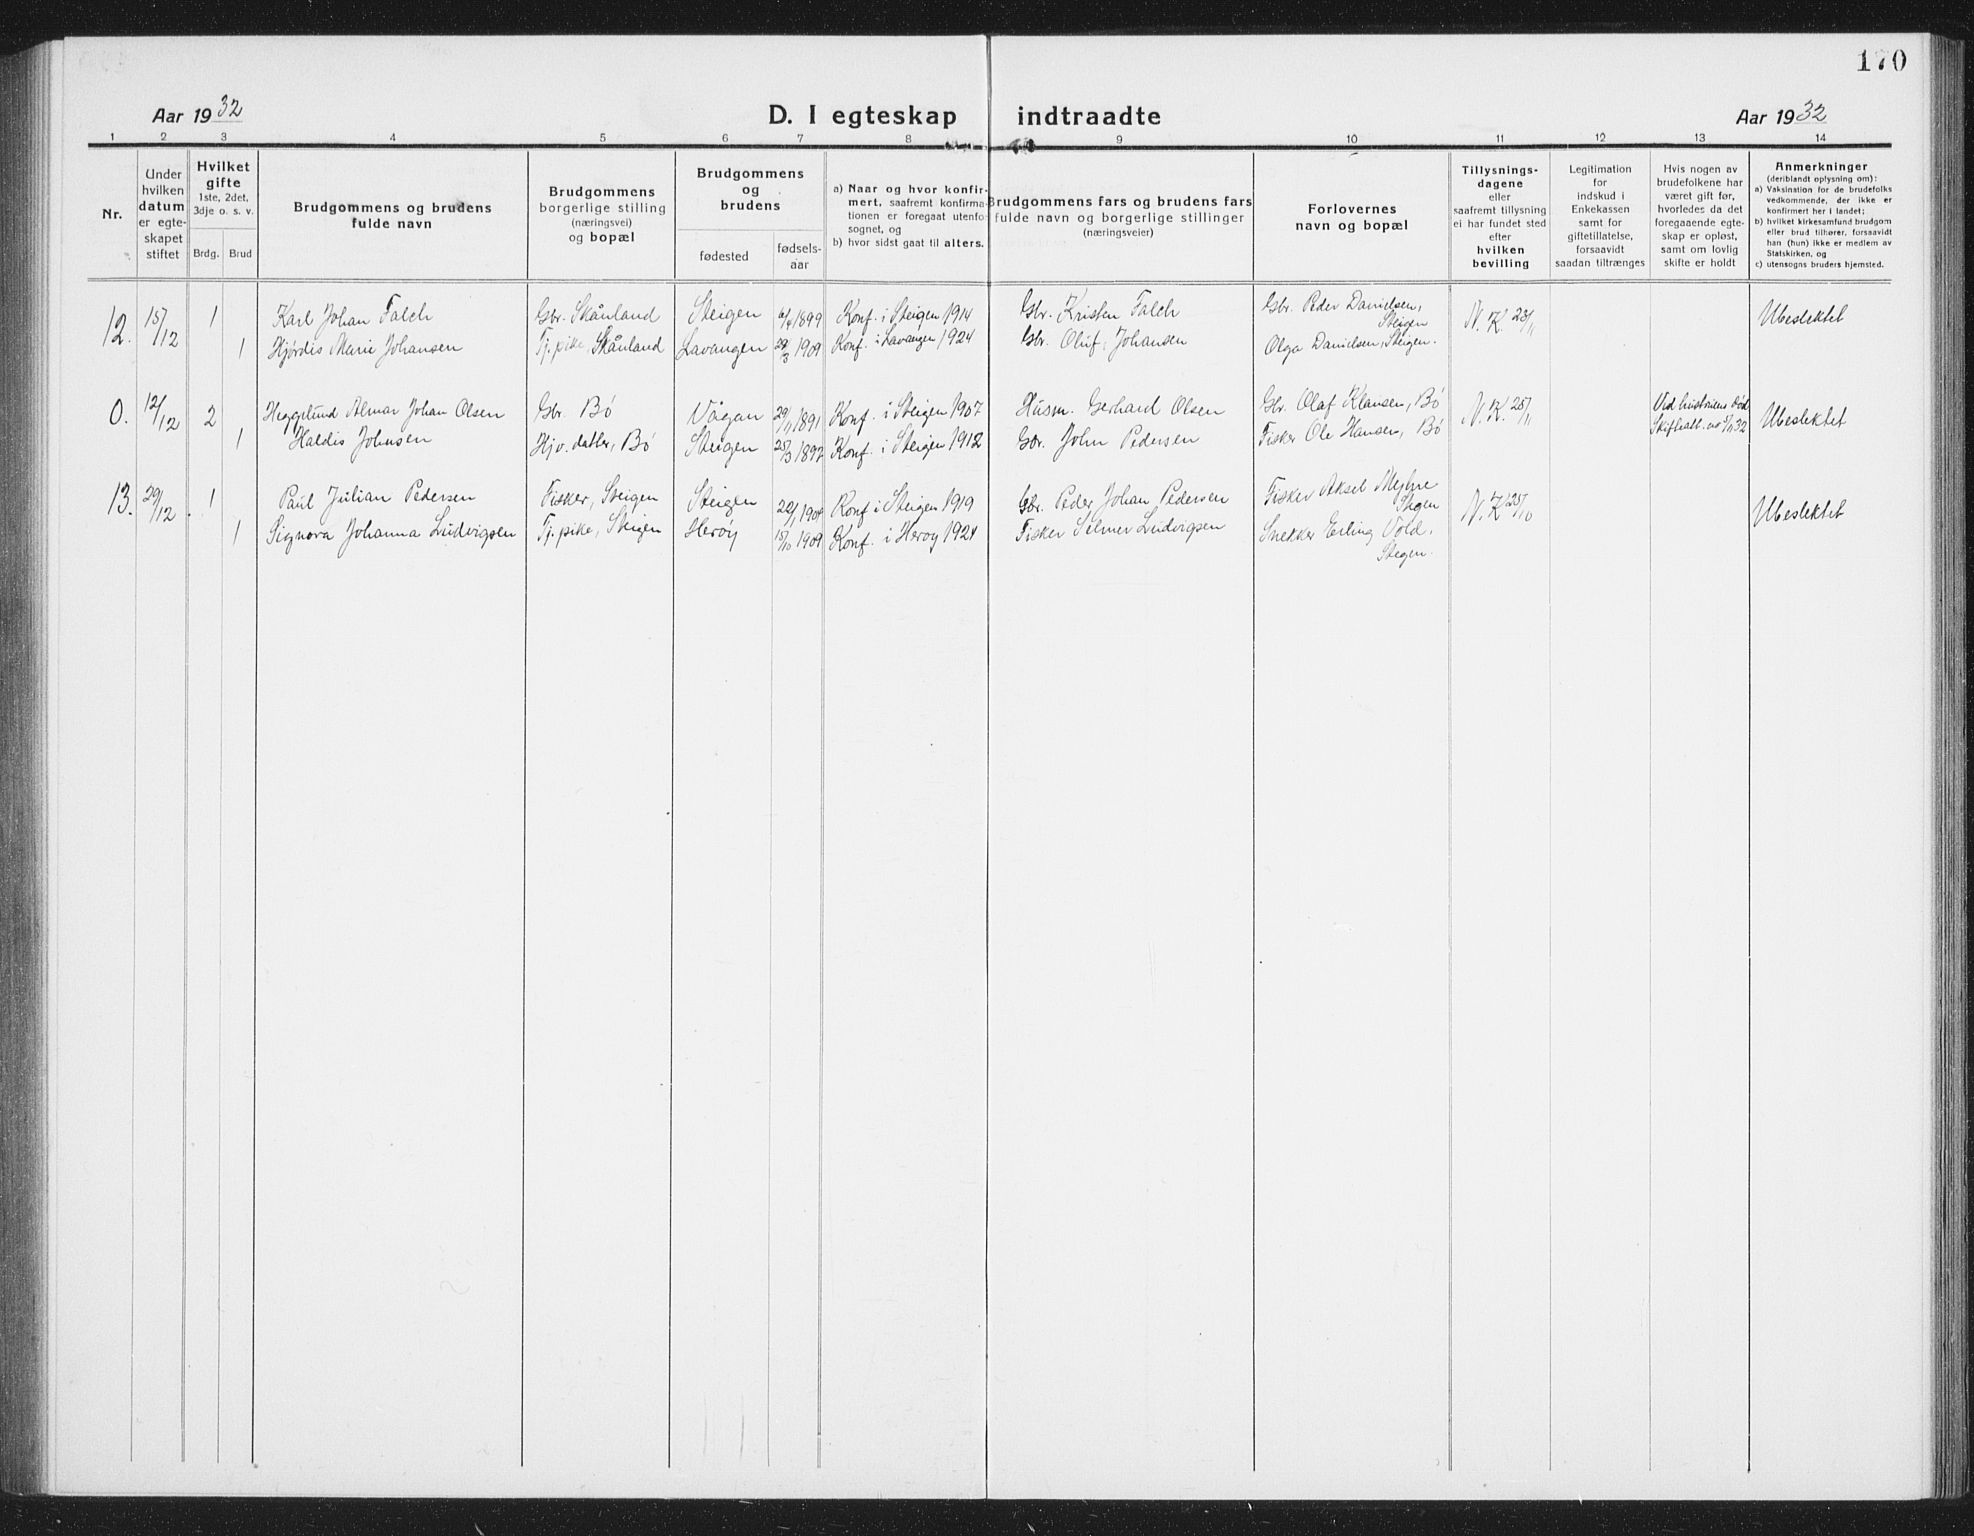 170
Aar 1932
D. I egteskap indtraadte
Aar 1932
1 2 3 4 5 6 7 8 9 10 11 12 13 14
Nr.
Under
hvilken
datum
er egte-
skapet
stiftet
Hvilket
gifte
1ste, 2det,
3dje o. s. v.
Brdg. Brud
Brudgommens og brudens
fulde navn
Brudgommens
borgerlige stilling
(næringsvei)
og bopæl
Brudgommens
og
brudens
fødested
fødsels-
aar
a) Naar og hvor konfir-
mert, saafremt konfirma-
tionen er foregaat utenfor
sognet, og
b) hvor sidst gaat til alters.
Brudgommens fars og brudens fars
fulde navn og borgerlige stillinger
(næringsveier)
Forlovernes
navn og bopæl
Tillysnings-
dagene
eller
saafremt tillysning
ei har fundet sted
efter
hvilken
bevilling
Legitimation
for
indskud i
Enkekassen
samt for
giftetillatelse,
forsaavidt
saadan tiltrænges
Hvis nogen av
brudefolkene har
været gift før,
hvorledes da det
foregaaende egte-
skap er opløst,
samt om lovlig
skifte er holdt
Anmerkninger
(deriblandt oplysning om):
a) Vaksination for de brudefolks
vedkommende, der ikke er
konfirmert her i landet;
b) hvilket kirkesamfund brudgom
eller brud tilhører, forsaavidt
han (hun) ikke er medlem av
Statskirken, og
c) utensogns bruders hjemsted.
12. 15/12 1 Karl Johan Falch Gbr. Skånland Steigen 6/4 1899 Konf. i Steigen 1914 Gbr. Kristen Falch Gbr. Peder Danielsen, Steigen N. K. 23/11 Ubeslektet
1 Hjørdis Marie Johansen Tj. pike, Skånland Lavangen 29/3 1909 Konf. i Lavangen 1924 Gbr. Oluf Johansen Olga Danielsen, Steigen.
0. 12/12 2 Hegglund Almar Johan Olsen Gbr. Bø Vågan 29/11 1891 Konf. i Steigen 1907 Husm. Gerhard Olsen Gbr. Olaf Klausen, Bø N. K. 25/11 Ved hustruens død Ubeslektet
1 Haldis Johnsen Hjv. datter, Bø Steigen 25/3 1897 Konf. i Steigen 1912 Gbr. John Pedersen Fisker Ole Hansen, Bø Skifteatt. 32
13. 29/12 1 Paul Julian Pedersen Fisker, Steigen Steigen 22/1 1904 Konf i Steigen 1919 Gbr. Peder Johan Pedersen Fisker Aksel Myhre Stegen N. K. 25/10 Ubeslektet
1 Signora Johanna Ludvigsen Tj. pike, Steigen Herøy 15/10 1909 Konf. i Herøy 1924 Fisker Selmer Ludvigsen Snekker Erling Vold, Stegen.